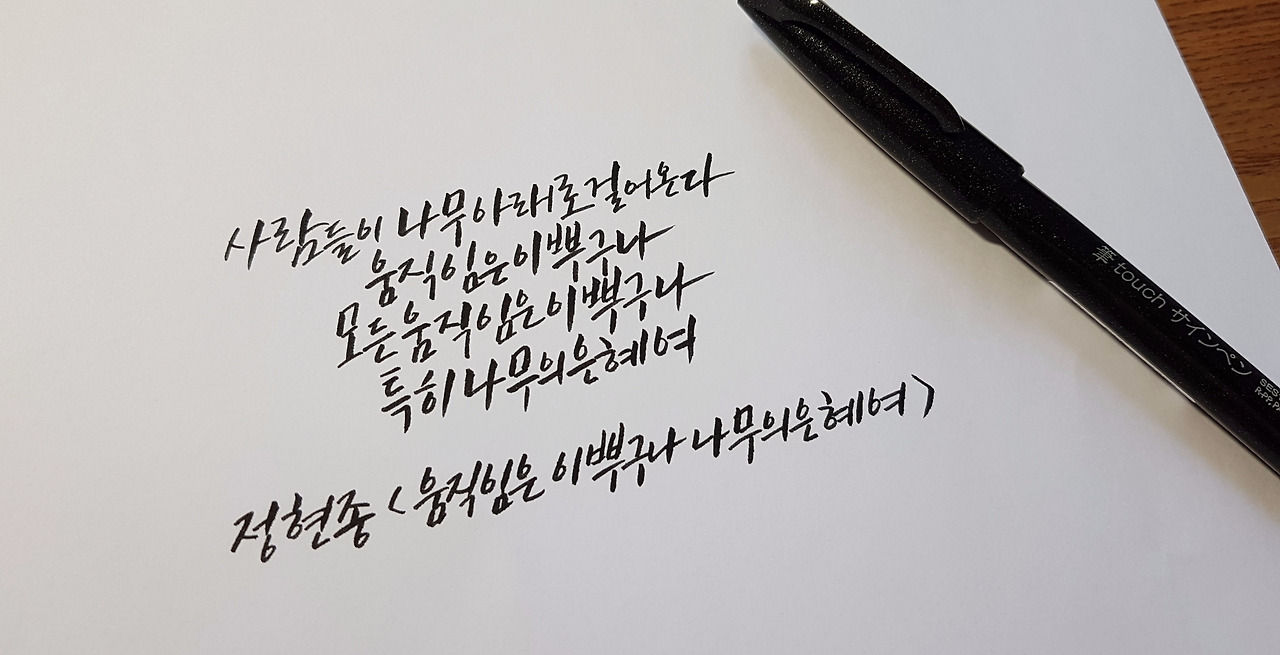 사람들이 나무 아래로 걸어온다
움직임은 이쁘구나
모든 움직임은 이쁘구나
특히 나무의 은혜여
정현종 <움직임은 이쁘구나 나무의 은혜여>
筆touch サインペン